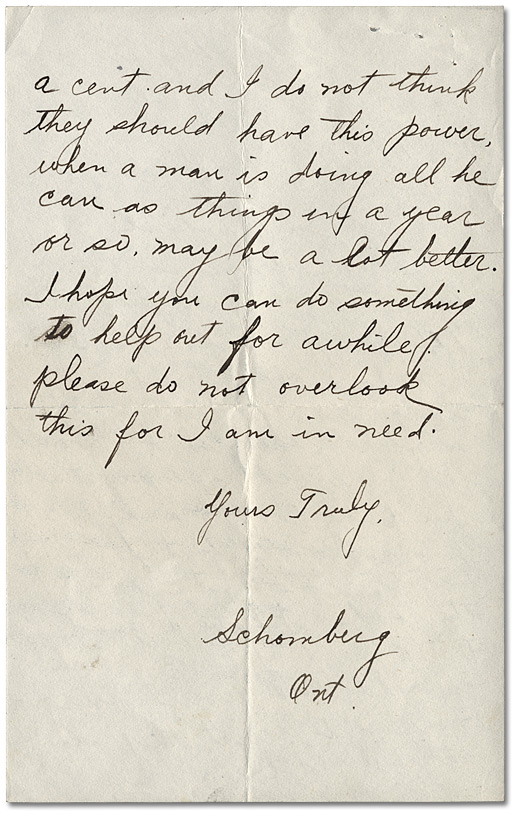 a cent. and I do not think
they should have this power,
when a man is doing all he
can as things in a year
or so, may be a lot better.
I hope you can do something
to help out for awhile.
please do not overlook
this for I am in need.
Yours Truly,
Schomberg
Ont.